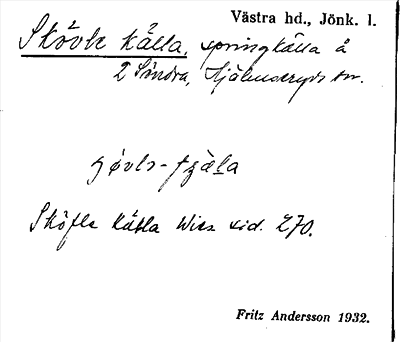 Västra hd., Jönk. l.
Skövle källa, springkälla å
2 Sindra, Hjälmseryds sn.
sjövls-tjäla
Sköfle källa Wies. sid. 270.
Fritz Andersson 1932.